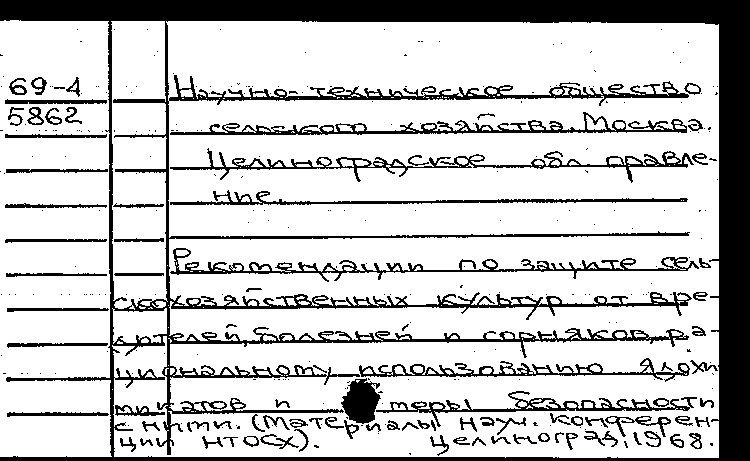 69-4 Научно-техническое общество
5862 сельского хозяйства. Москва.
Целиноградское обл. правле-
ние.
Рекомендации по защите сель-
скохозяйственных культур от вре-
дителей, болезней и сорняков, ра-
циональному использованию ядохи
микатов и меры безопасности
с ними. (Материалы науч. конферен-
ции НТОСХ). Целиноград, 1968.